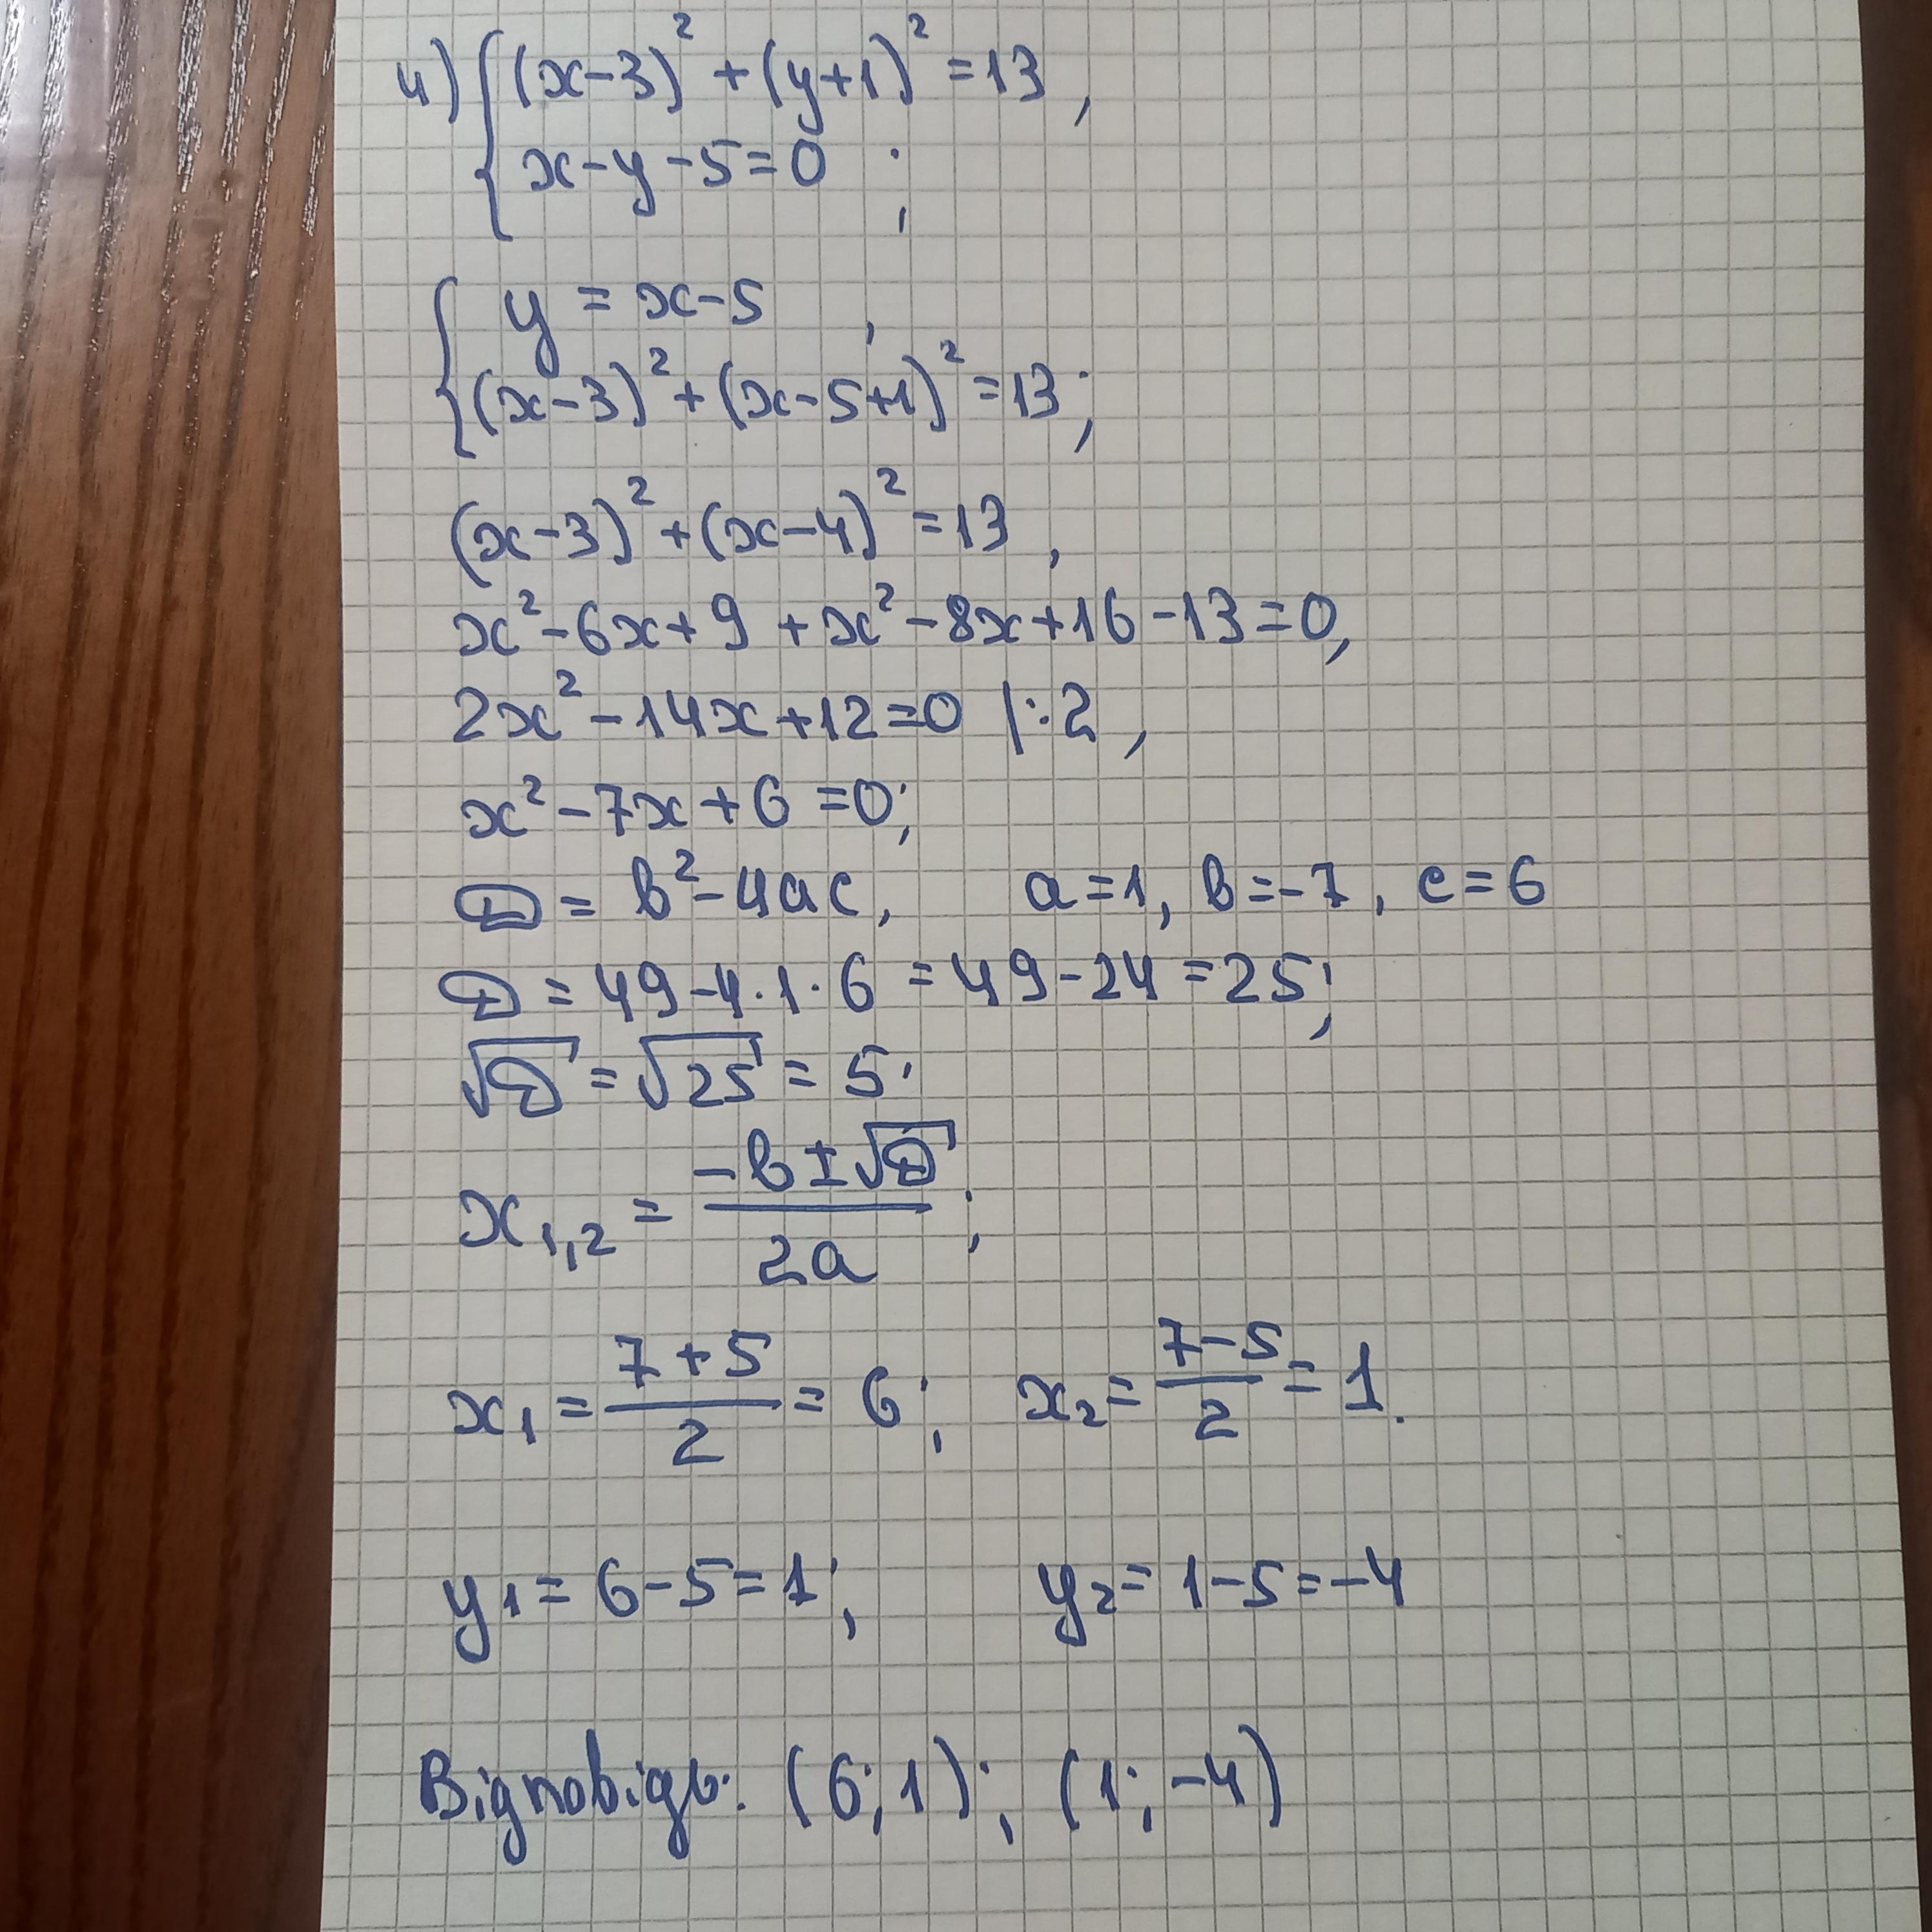 4) { (x-3)² + (y+1)² = 13,
x-y-5=0 ;
{ y = x-5 ,
(x-3)² + (x-5+1)² = 13;
(x-3)² + (x-4)² = 13 ,
x² - 6x + 9 + x² - 8x + 16 - 13 = 0,
2x² - 14x + 12 = 0 |:2 ,
x² - 7x + 6 = 0;
D = b² - 4ac, a = 1, b = -7, c = 6
D = 49 - 4·1·6 = 49 - 24 = 25;
√D = √25 = 5.
x₁,₂ = (-b ± √D)/(2a) ;
x₁ = (7+5)/2 = 6; x₂ = (7-5)/2 = 1.
y₁ = 6-5 = 1; y₂ = 1-5 = -4
Відповідь: (6; 1); (1; -4)